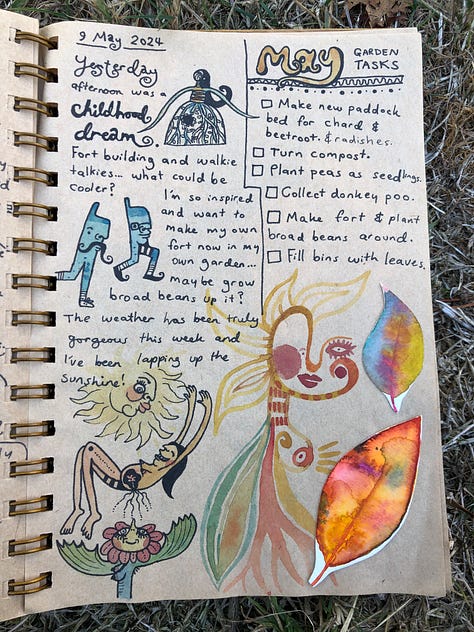 9 May 2024
Yesterday
afternoon was a
childhood
dream.
Fort building and walkie
talkies... what could be
cooler?
I'm so inspired
and want to
make my own
fort now in my
own garden...
maybe grow
broad beans up it?
The weather has been truly
gorgeous this week and
I've been lapping up the
Sunshine!
May GARDEN
TASKS
Make new paddock
bed for chard &
beetroot. & radishes.
Turn compost.
Plant peas as seedlings.
Collect donkey poo.
Make fort & plant
broad beans around.
Fill bins with leaves.